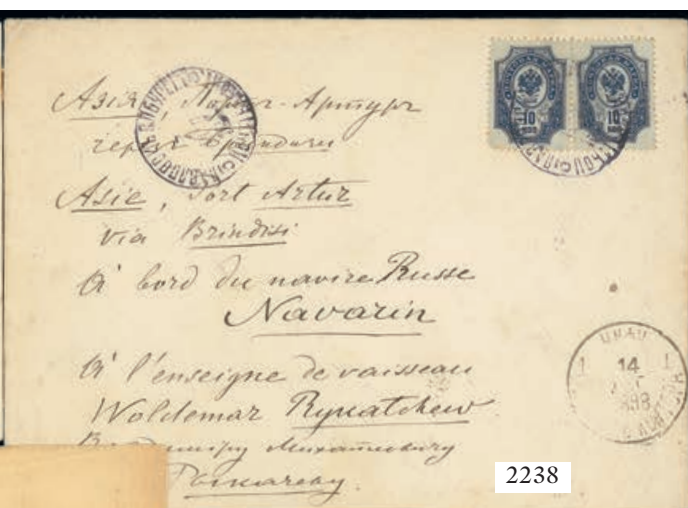 Азія, Портъ-Артуръ
черезъ Бриндизи
Asie, Port Artur
via Brindisi
À bord du navire Russe
Navarin
À l'enseigne de vaisseau
Woldemar Rykatchew
Михайловичу
Рыкачеву.
10 10
1 14 1
2238